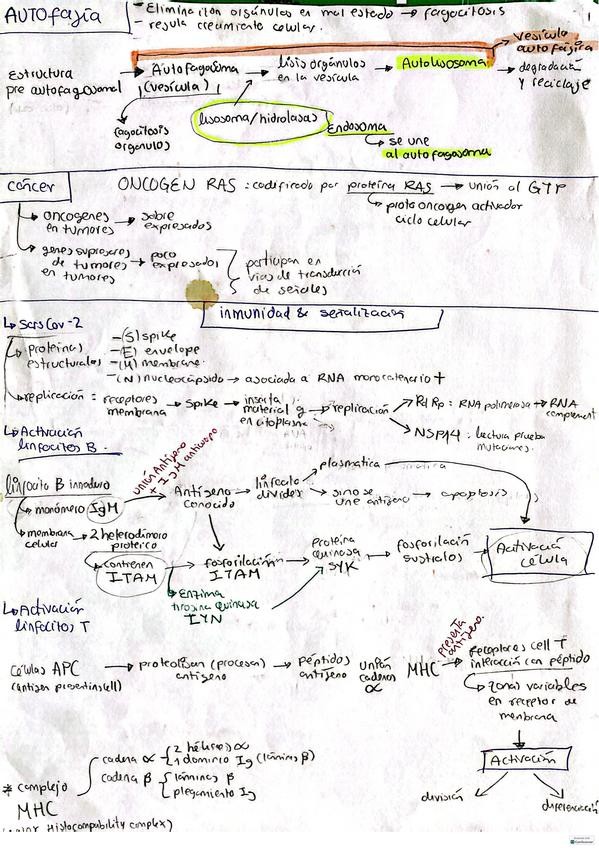 AUTOfagia
- Eliminación orgánulos en mal estado → fagocitosis
- regula crecimiento celular.
1
Estructura pre autofagosomal → Autofagosoma (vesícula) → lisis orgánulos en la vesícula → Autolisosoma → degradación y reciclaje
→ Vesícula autofágica
fagocitosis orgánulos
lisosoma/hidrolasas
Endosoma
→ se une al autofagosoma
cáncer
ONCOGEN RAS : codificado por proteína RAS → unión al GTP
→ proto oncogen activador ciclo celular
→ oncogenes en tumores → sobre expresados
→ genes supresores de tumores en tumores → poco expresados
participan en vías de transducción de señales
inmunidad & señalización
↳ SarsCov-2
→ proteínas estructurales
-(S) spike
-(E) envelope
-(M) membrane
-(N) nucleocápsido → asociada a RNA monocatenario +
→ replicación : receptores membrana → Spike → inserta material g en citoplasma → replicación
RdRp : RNA polimerasa → RNA complement
NSP14 : lectura prueba mutaciones.
↳ Activación linfocitos B.
linfocito B innaduro
unión Antígeno + IgM anticuerpo
→ monómero IgM → Antígeno conocido → linfocito divides → plasmatica
→ si no se une antígeno → apoptosis
→ membrana celular → 2 heterodímero proteico
→ contienen ITAM → fosforilación ITAM → Proteína quinasa SYK → fosforilación sustratos → Activación célula
Enzima tirosina quinasa LYN
↳ Activación linfocitos T
Células APC (antigen presenting cell) → proteolisan (procesar) antígeno → péptidos antígeno unión cadenas α MHC → receptores cell T interacción con péptido
presenta antígeno.
→ zonas variables en receptor de membrana
Activación
división
diferenciación
* complejo MHC
cadena α
2 hélices α
1 dominio Ig (láminas β)
cadena β
láminas β
plegamiento Ig
Histocompability complex)
CamScanner